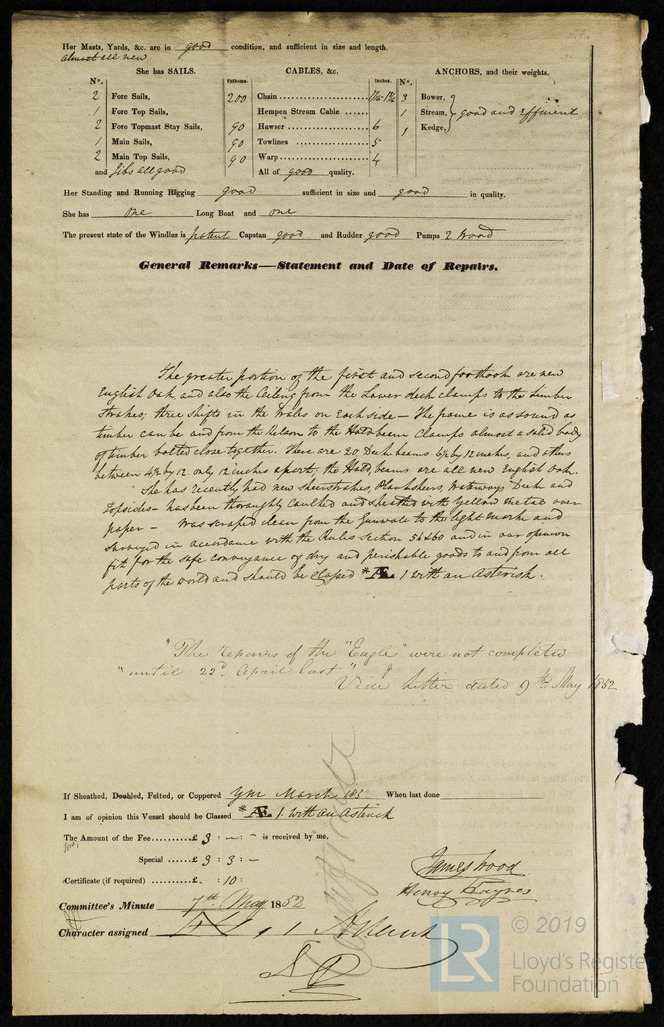 Her Masts, Yards, &c. are in good condition, and sufficient in size and length.
almost all new
She has SAILS.
CABLES, &c.
ANCHORS, and their weights.
N°.
Fathoms.
Inches.
N°.
2 Fore Sails,
200 Chain
3 Bower,
1 Fore Top Sails,
Hempen Stream Cable
1 Stream, good and efficient
2 Fore Topmast Stay Sails,
90 Hawser 6
1 Kedge,
1 Main Sails,
90 Towlines 5
2 Main Top Sails,
90 Warp 4
and Jibs all good
All of good quality.
Her Standing and Running Rigging good sufficient in size and good in quality.
She has one Long Boat and one
The present state of the Windlas is patent Capstan good and Rudder good Pumps 2 Wood
General Remarks—Statement and Date of Repairs.
The greater portion of the first and second foothook are new
English Oak, and also the Ceiling from the Lower deck clamps to the limber
strakes; three shifts in the Wales on each side — The frame is as sound as
timber can be and from the Kelson to the Hold beam clamps almost a solid body
of timber bolted close together. There are 20 Deck beams by 12 inches, and others
between by 12 only 12 inches apart; the Hold beams are all new English Oak.
She has recently had new Sheerstrakes, Planksheers, Waterways, Deck and
Topsides - has been thoroughly caulked and sheathed with Yellow metal over
paper - Was scraped clean from the Gunwale to the light mark and
surveyed in accordance with the Rules Section 54 & 60 and in our opinion
fit for the safe conveyance of dry and perishable goods to and from all
parts of the world and should be classed *Æ 1 with an Asterisk.
"The repairs of the "Eagle" were not completed
"until 22d April last"
Vide Letter dated 9th May 1852
If Sheathed, Doubled, Felted, or Coppered YM March 185 When last done
I am of opinion this Vessel should be Classed *Æ 1. with an asterisk
The Amount of the Fee £ 3 : – : – is received by me,
Special £ 3 : 3 : –
James Wood
Certificate (if required) £ . : 10 :
Henry Haynes
Committee's Minute 7th May 1852
Character assigned
© 2019
LR
Lloyd's Register
Foundation